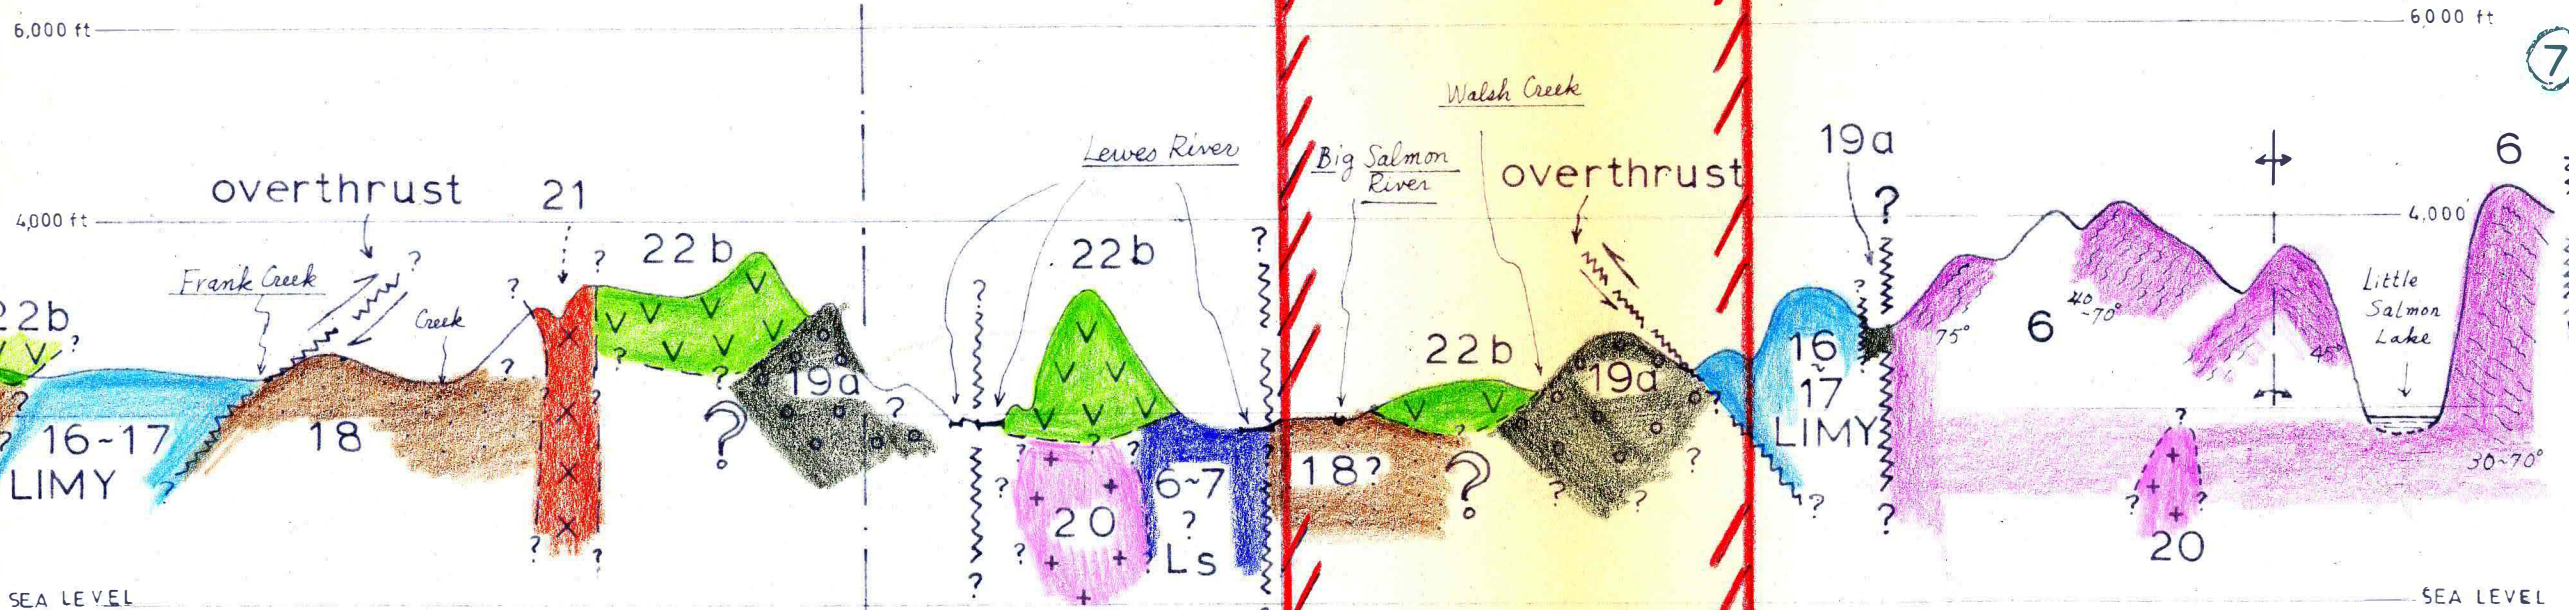 6,000 ft
6,000 ft
7
Walsh Creek
Lewes River
Big Salmon
River
overthrust
19a
6
overthrust
21
?
4,000 ft
4,000'
22b
22b
?
?
Frank Creek
?
?
?
?
?
Creek
Little
Salmon
Lake
22b
75°
6
40
-70°
45°
22b
16
~
17
LIMY
?
?
?
?
19a
19a
?
?
?
?
?
?
?
16~17
LIMY
18
?
?
?
?
20
6~7
?
Ls
18?
?
?
?
?
?
?
?
?
?
20
30~70°
?
?
?
?
?
?
?
SEA LEVEL
SEA LEVEL